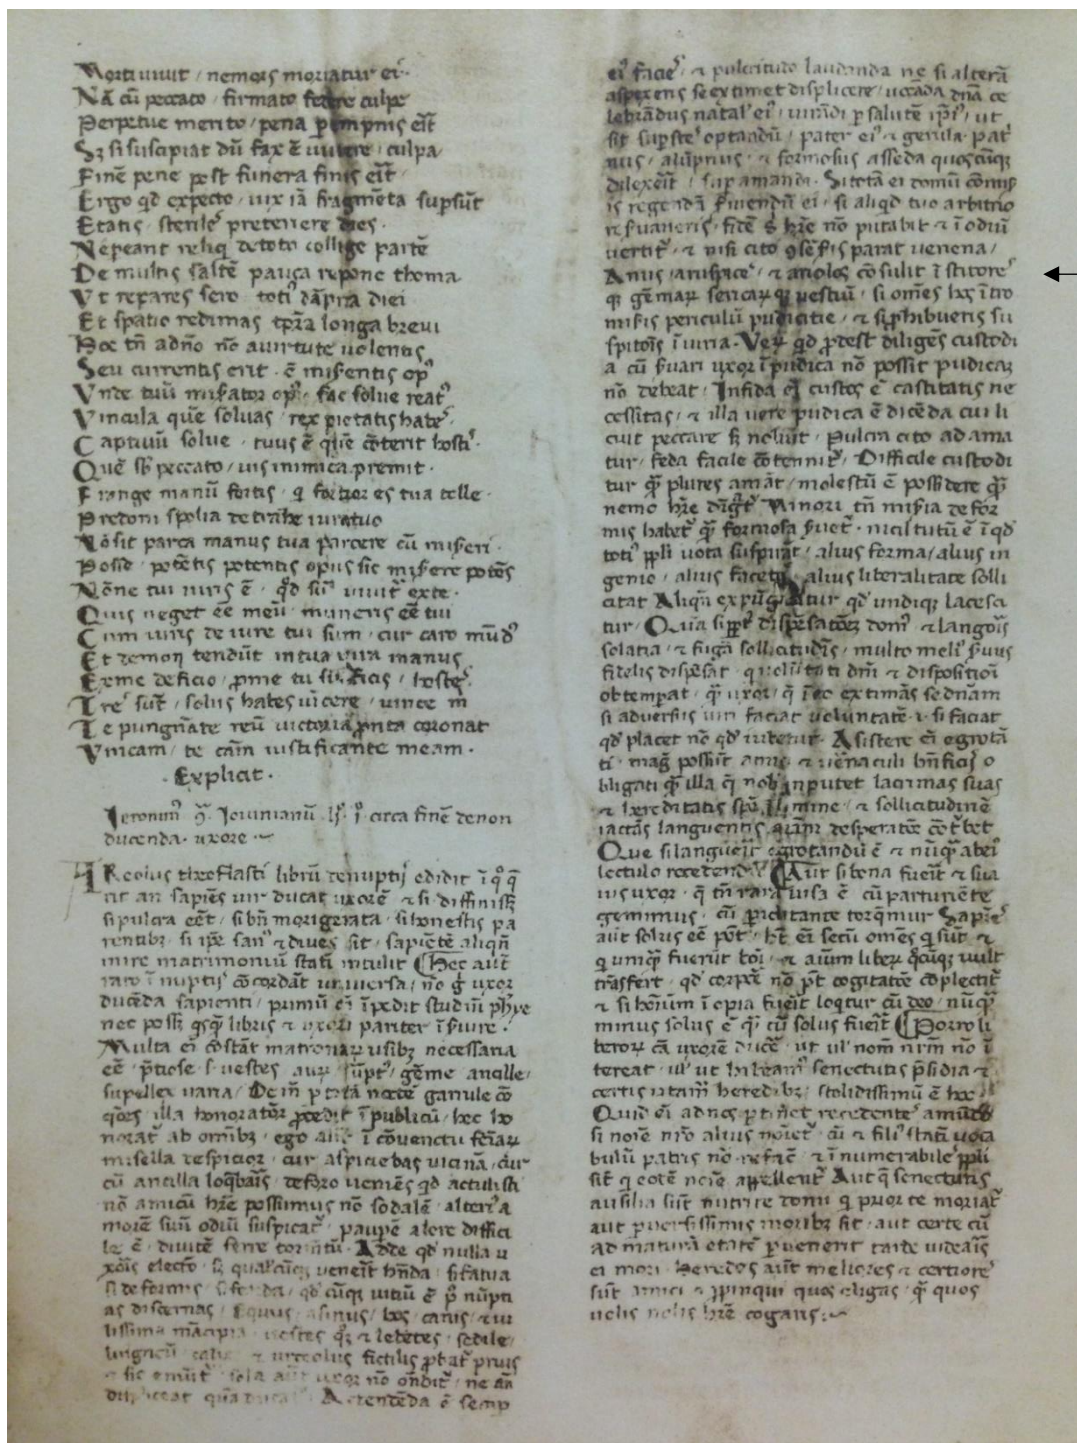 Morti vivit / nemors moriatur ei᷒·
Nā cū peccato / firmato federe culpe
Perpetue merito / pena ꝑempnis eēt
Sꝫ si suscipiat dū fax ē vivere / culpa
Finē pene post funera finis eēt
Ergo qd expecto / vix iā fragmēta supsūt
Etatis / steriles preteriere dies·
Ne pereant reliq detoto collige partē
De multis saltē pauca repone thoma
Vt repares sero toti᷒ dāpna diei
Et spatio redimas tpꝛa longa brevi
Hoc tn̄ adnō nō avirtute volentis
Seu currentis erit · ē misentis op᷒
Vnde tuū misator op᷒ · fac solve reat᷒
Vincula que solvas / rex pietatis habes·
Captivū solve · tuus ē quē cōterit hostis·
Quē sb peccato / vis inimica premit·
Frange manū fortis · q fortior es tua telle
Predoni spolia detrahe
Nō sit parca manus tua parcere cū miseri·
Posse potētis potentis opus sic misere potēs
Nōne tui iuris ē · qd vivit exte·
Quis neget eē meū muneris eē tui
Cum iuris de iure tui sim · cur caro mūd᷒
Et demon tendūt in tua iura manus
Ex me deficio / ꝓme tu hostes
Tres sūt / solus habes vīcere / vince
Te pungnāte reū victoria coronat
Vnicam / te cām iustificante meam·
·Explicit·
Ieronim᷒ ꝯ Iovinianū li᷒ i᷒ circa finē denon
ducenda uxore
AReolus theoFrasti librū denuptijs edidit ī q᷒ q̄
rit an sapiēs vir ducat uxorē ⁊ si diffinissꝫ
si pulcra eēt / si bn̄ morigerata si honestis pa
rentibꝫ / si ipse san᷒ ⁊ dives sit / sapiētē aliqn̄
inire matrimoniū stati intulit ¶Hec aut̄
raro ī nuptijs cōcordāt universa / nō g uxor
ducēda sapienti / primū ei ipedit studiū phye
nec possꝫ qsq̄ libris ⁊ uxori pariter īsvire·
Multa ei cōstāt matronaꝝ usibꝫ necessaria
eē ptiose vestes auꝝ gēme ancille
supellex varia / De in ꝑ totā noctē garule cō
q̄ōes / illa honoratior ꝓcedit ī publicū / hec ho
norat ab omībꝫ ego ī cōventu fēiaꝝ
misella despicior / cur aspiciebas vicinā / cur
cū ancilla loqbaris de foro veniēs qd actulisti
nō amicū hr̄e possimus nō sodalē / alterīa
morē suū odiū suspicat · paupē alere diffici
le ē / divitē ferre · Adde qd nulla u
xoris electio · sꝫ qualcūqꝫ venerit hn̄da / si fatua
si deformis qd cūqꝫ vitiū ē pꝰ nupti
as discernas / Equus asinus / bos canis / ⁊ vi
lissima mācipia vestes qꝫ ⁊ lebetes / sedile
⁊ urceolus fictilis ꝓbat᷒ prius
⁊ sic emūt sola aut̄ uxor nō ōndit᷒ / ne an̄
displiceat quā ducat Attendēda ē semp
ei᷒ facies / ⁊ pulcritudo laudanda ne si alterā
aspexeris se extimet displicere / vocāda dn̄a ce
lebrādus natal᷒ ei᷒ / iurādi ꝑ salutē ipi᷒ / ut
sit supstes optandū / pater ei᷒ ⁊ gerula / pat᷒
nus / alūpnus / ⁊ formosus asseda quoscūqꝫ
dilexerit amandi · Si totā ei domū cōmis
is regendā svīendū ei / si aliqd tuo arbitrio
reservaveris / fidē s hr̄e nō putabit ⁊ ī odiū
vertit᷒ / ⁊ nisi cito parat venena /
Anus / aruspices / ⁊ ariolos cōsulit īstitores
qꝫ gēmaꝝ sericaꝝ qꝫ vestiū / si omēs hos ītro
misis periculū pudicitie / ⁊ si ꝓhibueris su
spitōis iniuria · Veꝝ qd ꝓdest diligēs custodi
a cū svari uxor īpudica nō possit pudicaꝫ
nō debeat · Infida ei custos ē castitatis ne
cessitas / ⁊ illa vere pudica ē dicēda cui li
cuit peccare si noluit / Pulcra cito ad ama
tur / feda facile cōtennit᷒ / Difficile custodi
tur q̄ plures amāt / molestū ē possidere q̄
nemo hr̄e dignet᷒ Minori tn̄ misia defor
mis habet᷒ q̄ formosa svet᷒ · nicil tutū ē ī qd
toti᷒ ppli vota suspirāt / alius forma / alius in
genio / alius facetijs alius liberalitate solli
citat Aliqn̄ expūgnatur qd undiqꝫ lacesci
tur / Qua si ꝓpt᷒ dispēsatōeꝫ dom᷒ ⁊ langoris
solatia / ⁊ fugā sollicitudis / multo meli᷒ svus
fidelis dispēsat / dn̄i / ⁊ dispositioi
obtemperat / q̄ uxor / q̄ ī eo extimās se dn̄am
si adversus viri faciat voluntatē · i · si faciat
qd placet nō qd iubetur · Assistere ei egrotā
ti · mag᷒ possūt amici ⁊ vernaculi bn̄ficijs o
bligati q̄ illa q̄ nob inputet lacrimas suas
⁊ hereditatis spū ⁊ sollicitudinē
iactās languentis desperatōe cōt᷒bet
Que si languerit egrotandū ē ⁊ nūq̄ ab ei᷒
lectulo recedend ¶Aut si bona fuerit ⁊ sua
vis uxor · q̄ tn̄ rara avis ē cū parturiēte
gemimus / cū periclitante torqmur Sapiēs
aut̄ solus eē pōt᷒ · ht ei secū omēs q sūt ⁊
q umq̄ fuerūt boi᷒ / ⁊ aīum liberū qcūqꝫ vult
trāsfert / qd corpore nō pt cogitatōe cōplectit᷒
⁊ si hoīum īopia fuerit loqtur cū deo / nūq̄
minus solus ē q̄ cū solus fuerit ¶Porro li
beroꝝ cā uxorē ducē᷒ · ut ul᷒ nom̄ nrm nō ī
tereat / ul᷒ ut habeam᷒ senectutis psidia ⁊
certis utam᷒ heredibꝫ / stolidissimū ē hoc
Quid ei ad nos ꝑtinet recedentes amūdo
si noīe nro alius noīet᷒ cū ⁊ fili᷒ stati voca
bulū patris nō referat ⁊ īnumerabiles ppli
sit q eodē noīe appellent᷒ Aut q senectutis
ausilia sūt nutrire domi q prior te moriat᷒
aut pversissimis moribꝫ sit · aut certe cū
ad maturā etatē ꝑvenerit tarde videaris
ei mori · Heredes aut̄ meliores ⁊ certiores
sūt amici ⁊ ꝓpinqui quos eligas q̄ quos
velis nolis hr̄e cogaris: